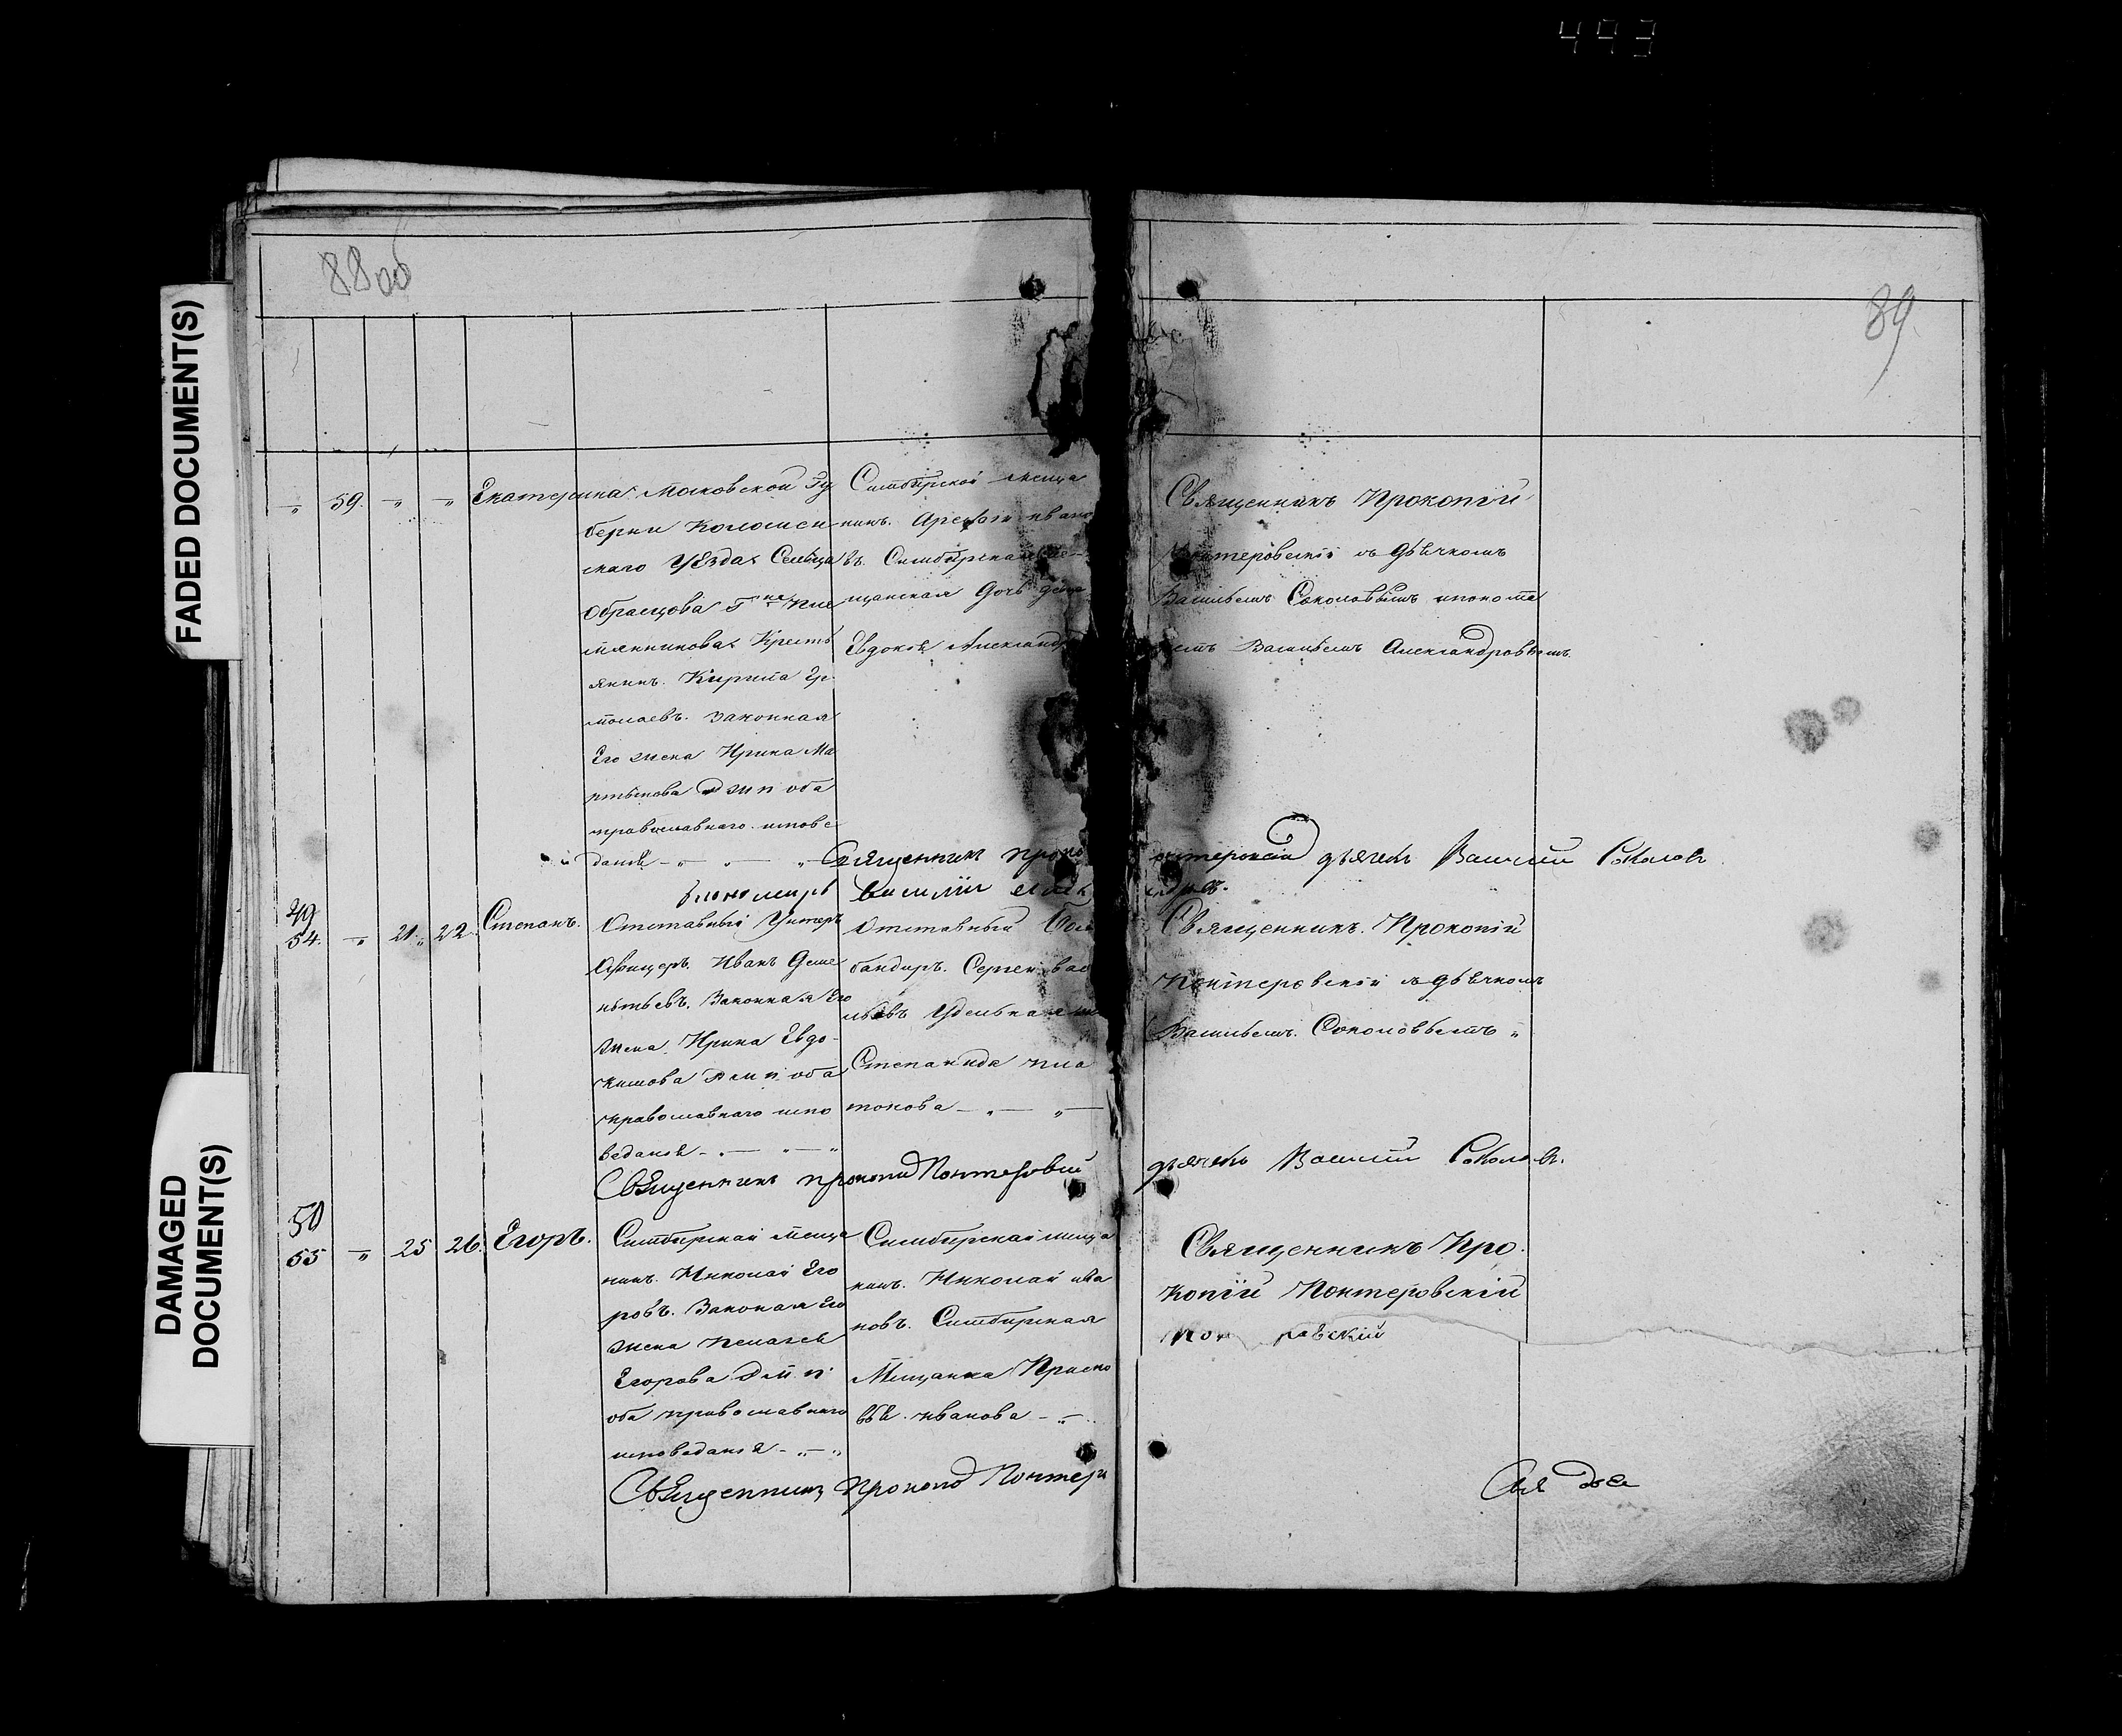 493
88 об
89
FADED DOCUMENT(S)
DAMAGED DOCUMENT(S)
„ 59. „ „ Екатерина.
Московской Гу
берни Коломен
скаго Уѣзда Сельца
Образцова Гна Пле
мянникова Кресть
янинъ. Кирила Ер
молаевъ. Законная
Его жена Ирина Ма
ртынова оба
православнаго испове
данія
Симбирской меща
нинъ. Арсений Ивано
въ. Симбирская ме-
щанская дочь
Евдокія Александр
Священникъ Прокопій
Понтеровскій съ дьячкомъ
Васильемъ Соколовымъ и поном
Васильемъ Александровымъ.
Священникъ Проко
понтеровскій дьячекъ Василий Соколовъ
пономарь Василій
49
54. „ 21. 22. Степанъ.
Отставный Унтеръ
Офицеръ. Иванъ Деме
нтьевъ. Законная Его
жена. Ирина Евдо-
кимова оба
православнаго испо
веданія
Отставный Бом
бандиръ. Сергеи Вас
льевъ Удельная
Степанида Пла
тонова
Священникъ. Прокопій
Понтеровскій съ дьячкомъ
Васильемъ. Соколовымъ „
Священникъ Прокопий Понтеровский
дьячекъ Василий Соколовъ.
50
55 „ 25 26. Егоръ.
Симбирский меща
нинъ. Николай Его
ровъ. Законая Его
жена Пелагея
Егорова
оба православнаго
исповеданія
Симбирский меща
нинъ. Николай Ива
новъ. Симбирская
Мещанка Праско
вья. Иванова
Священникъ Про
копій Понтеровскій
Священникъ Прокопий Понтер